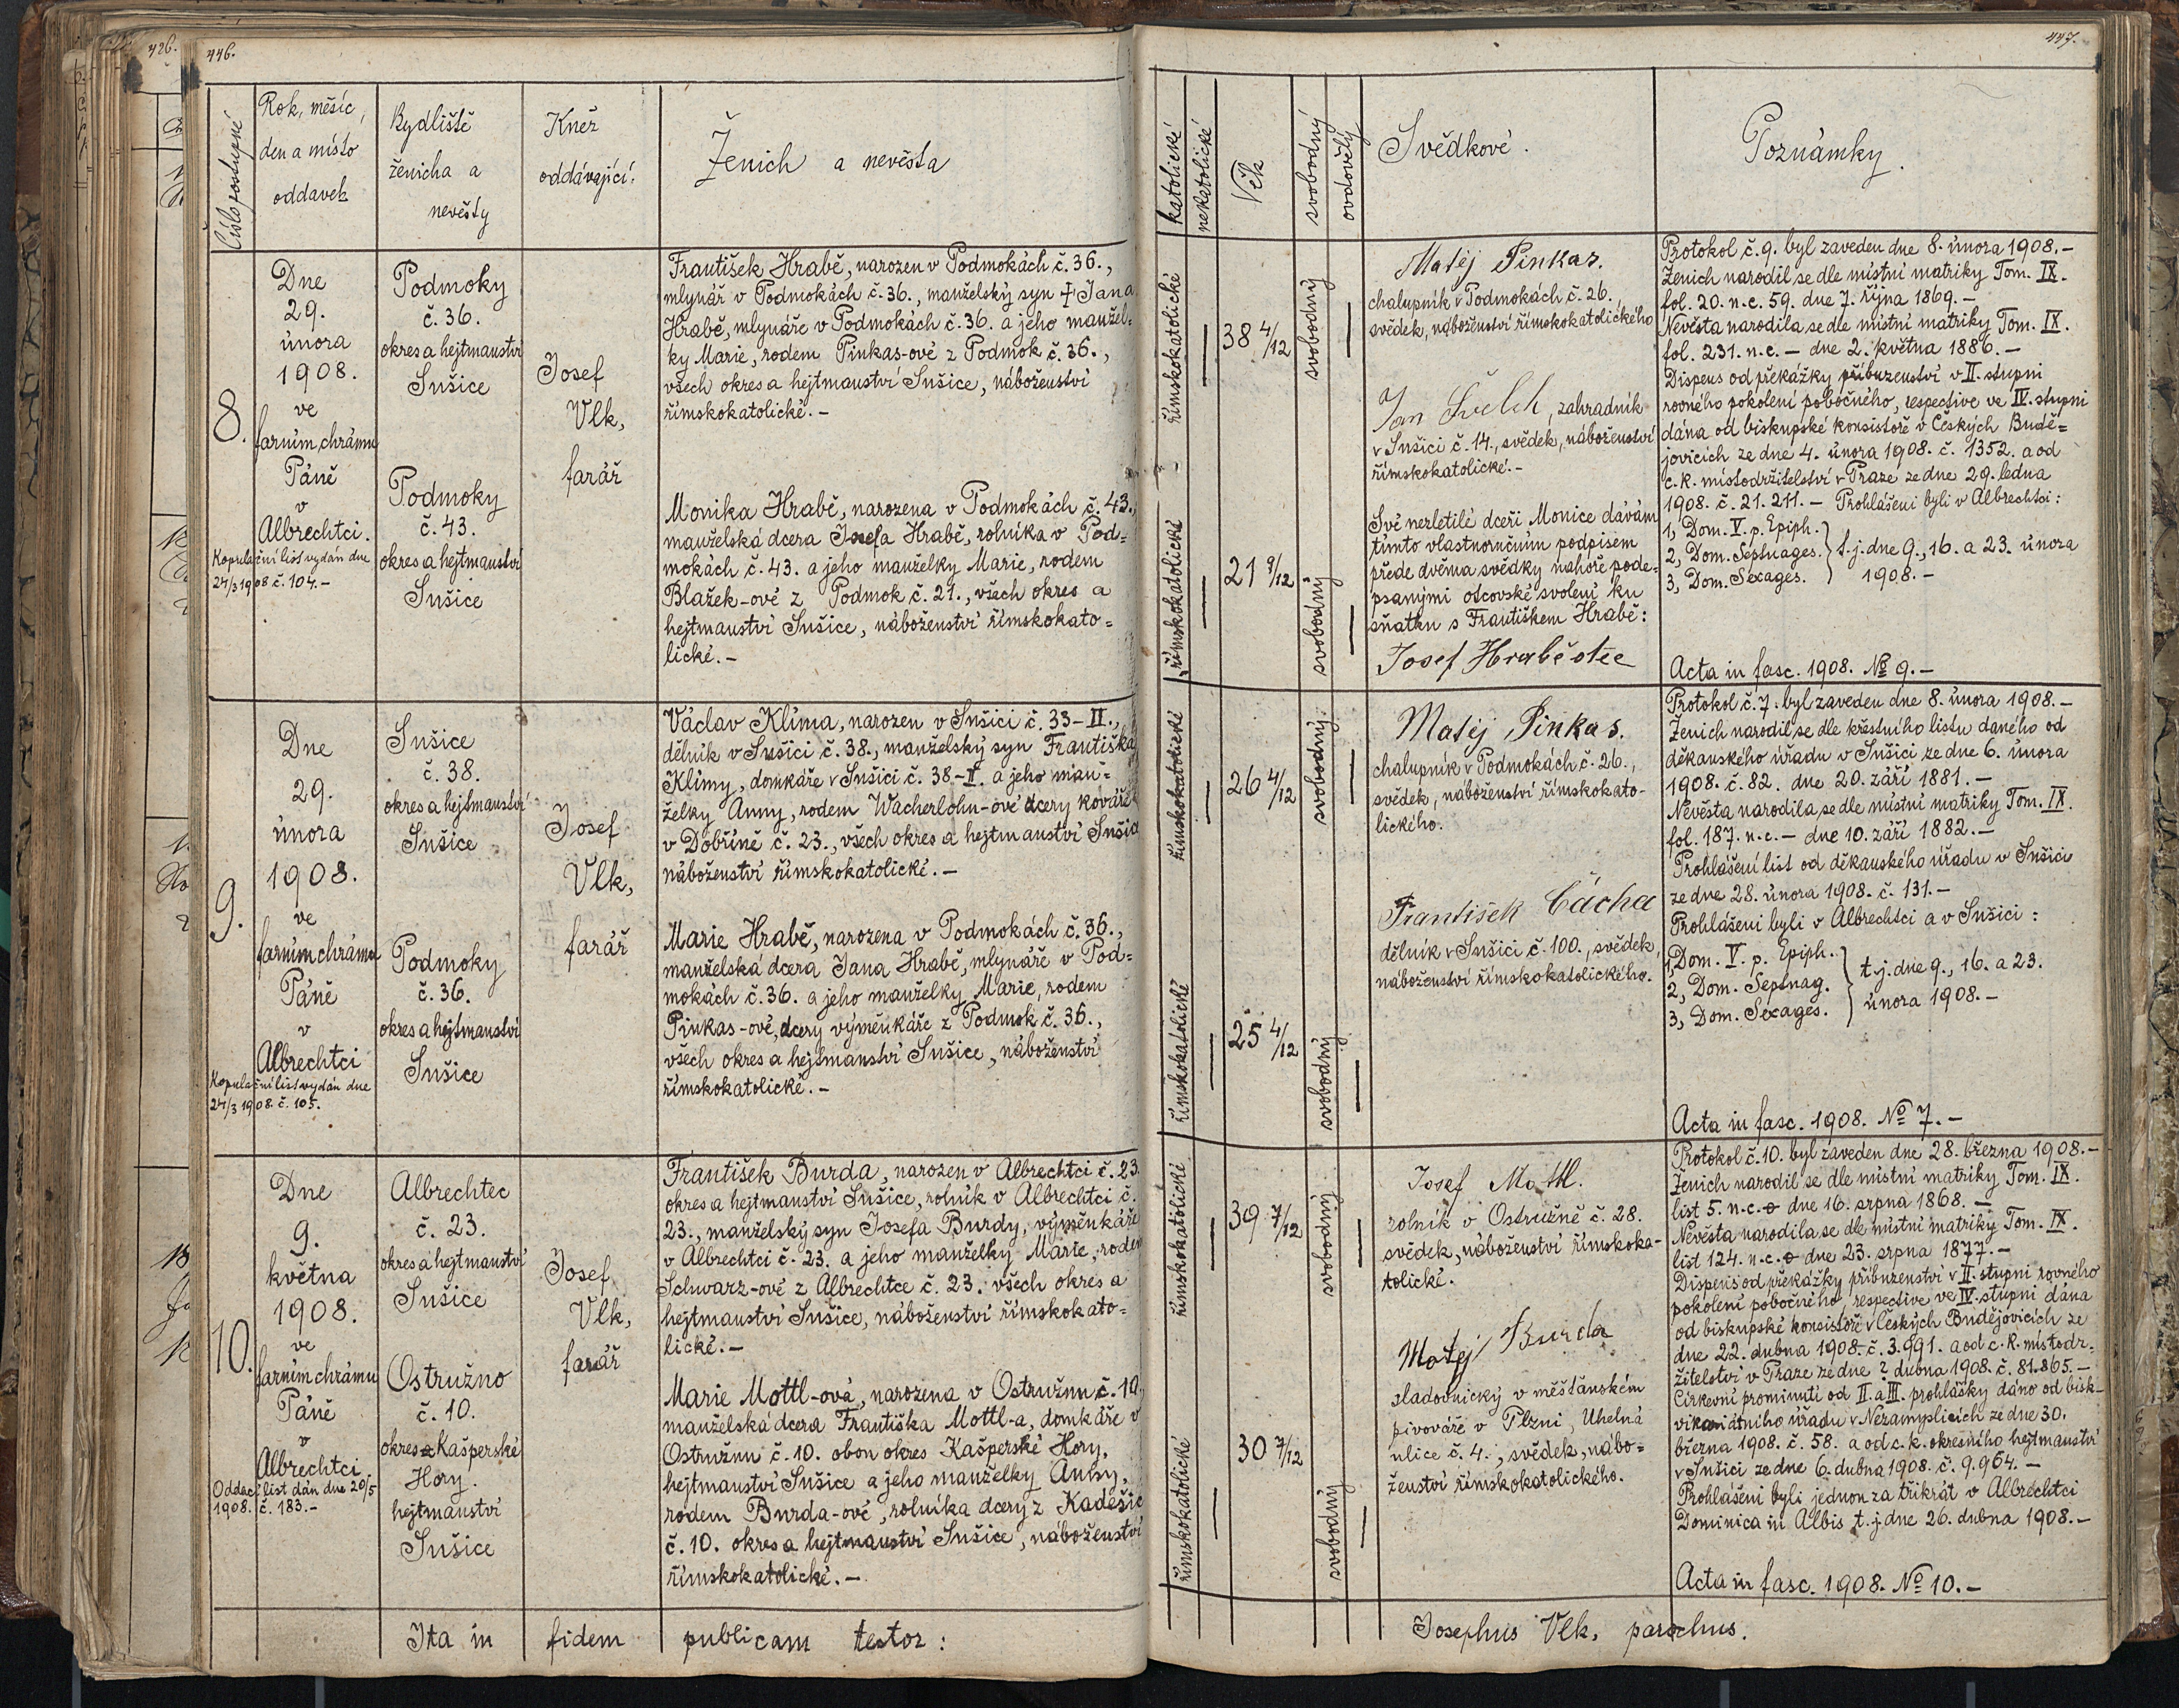 426.
446.
Číslo postupné
Rok, měsíc,
den a místo
oddavek
Bydliště
ženicha a
nevěsty
Kněz
oddávající:
Ženich a nevěsta
8.
Dne
29.
února
1908.
ve
farním chrámu
Páně
v
Albrechtci.
Kopulační list vydán dne
24/3 1908 č. 104.-
Podmoky
č. 36.
okres a hejtmanství
Sušice
Podmoky
č. 43.
okres a hejtmanství
Sušice
Josef
Vlk,
farář
František Hrabě, narozen v Podmokách č. 36.,
mlynář v Podmokách č. 36., manželský syn † Jana
Hrabě, mlynáře v Podmokách č. 36. a jeho manžel=
ky Marie, rodem Pinkas-ové z Podmok č. 36.,
všech okres a hejtmanství Sušice, náboženství
římskokatolické.-
Monika Hrabě, narozena v Podmokách č. 43.,
manželská dcera Josefa Hrabě, rolníka v Pod=
mokách č. 43. a jeho manželky Marie, rodem
Blažek-ové z Podmok č. 21., všech okres a
hejtmanství Sušice, náboženství římskokato=
lické.-
9.
Dne
29.
února
1908.
ve
farním chrámu
Páně
v
Albrechtci
Kopulační list vydán dne
24/3 1908. č. 105.
Sušice
č. 38.
okres a hejtmanství
Sušice
Podmoky
č. 36.
okres a hejtmanství
Sušice
Josef
Vlk,
farář
Václav Klíma, narozen v Sušici č. 33-II.,
dělník v Sušici č. 38., manželský syn Františka
Klímy, domkáře v Sušici č. 38-II. a jeho man=
želky Anny, rodem Wacherlohn-ové dcery kováře
v Dobříně č. 23., všech okres a hejtmanství Sušice
náboženství římskokatolické.-
Marie Hrabě, narozena v Podmokách č. 36.,
manželská dcera Jana Hrabě, mlynáře v Pod=
mokách č. 36. a jeho manželky Marie, rodem
Pinkas-ové, dcery výměnkáře z Podmok č. 36.,
všech okres a hejtmanství Sušice, náboženství
římskokatolické.-
10.
Dne
9.
května
1908.
ve
farním chrámu
Páně
v
Albrechtci
Oddací list dán dne 20/5
1908. č. 183.-
Albrechtec
č. 23.
okres a hejtmanství
Sušice
Ostružno
č. 10.
okres Kašperské
Hory.
hejtmanství
Sušice
Josef
Vlk,
farář
František Burda, narozen v Albrechtci č. 23.
okres a hejtmanství Sušice, rolník v Albrechtci č.
23., manželský syn Josefa Burdy, výměnkáře
v Albrechtci č. 23. a jeho manželky Marie, rodem
Schwarz-ové z Albrechtce č. 23. všech okres a
hejtmanství Sušice, náboženství římskokato=
lické.-
Marie Mottl-ová, narozena v Ostružnu č. 10.,
manželská dcera Františka Mottl-a, domkáře v
Ostružnu č. 10. obou okres Kašperské Hory,
hejtmanství Sušice a jeho manželky Anny,
rodem Burda-ové, rolníka dcery z Kadešic
č. 10. okres a hejtmanství Sušice, náboženství
římskokatolické.-
Ita in fidem publicam testor:
447.
katolické
nekatolické
Věk
svobodný
ovdovělý
Svědkové.
Poznámky.
římskokatolické
38 4/12
svobodný
římskokatolické
21 9/12
svobodný
Matěj Pinkas.
chalupník v Podmokách č. 26.
svědek, náboženství římskokatolického
Jan Švelch, zahradník
v Sušici č. 14., svědek, náboženství
římskokatolické.-
Své nezletilé dceři Monice dávám
tímto vlastnoručním podpisem
přede dvěma svědky nahoře pode=
psanými otcovské svolení ku
sňatku s Františkem Hrabě:
Josef Hrabě otec
Protokol č. 9. byl zaveden dne 8. února 1908.-
Ženich narodil se dle místní matriky Tom. IX.
fol. 20. n.c. 59. dne 7. října 1869.-
Nevěsta narodila se dle místní matriky Tom. IX.
fol. 231. n.c. - dne 2. května 1886.-
Dispens od překážky příbuzenství v II. stupni
rovného pokolení pobočného, respective ve IV. stupni
dána od biskupské konsistoře v Českých Budě=
jovicích ze dne 4. února 1908. č. 1352. a od
c. k. místodržitelství v Praze ze dne 29. ledna
1908. č. 21.211.- Prohlášeni byli v Albrechtci:
1, Dom. V. p. Epiph.
2, Dom. Septuages. } t.j. dne 9., 16. a 23. února
3, Dom. Sexages. 1908.-
Acta in fasc. 1908. No 9.-
římskokatolické
26 4/12
svobodný.
římskokatolické
25 4/12
svobodný
Matěj Pinkas.
chalupník v Podmokách č. 26.,
svědek, náboženství římskokato-
lického.
František Cácha
dělník v Sušici č. 100., svědek,
náboženství římskokatolického.
Protokol č. 7. byl zaveden dne 8. února 1908.-
Ženich narodil se dle křestního listu daného od
děkanského úřadu v Sušici ze dne 6. února
1908. č. 82. dne 20. září 1881.-
Nevěsta narodila se dle místní matriky Tom. IX.
fol. 187. n.c. - dne 10. září 1882.-
Prohlášení list od děkanského úřadu v Sušici
ze dne 28. února 1908. č. 131.-
Prohlášeni byli v Albrechtci a v Sušici:
1, Dom. V. p. Epiph.
2, Dom. Septuag. } t.j. dne 9., 16. a 23.
3, Dom. Sexages. února 1908.-
Acta in fasc. 1908. No 7.-
římskokatolické
39 7/12
svobodný
římskokatolické
30 7/12
svobodný
Josef Mottl.
rolník v Ostružně č. 28.
svědek, náboženství římskoka-
tolické.
Matěj Burda
sladovnický v měšťanském
pivováře v Plzni, Uhelná
ulice č. 4., svědek, nábo=
ženství římskokatolického.
Protokol č. 10. byl zaveden dne 28. března 1908.-
Ženich narodil se dle místní matriky Tom. IX.
list 5. n.c. dne 16. srpna 1868.-
Nevěsta narodila se dle místní matriky Tom. IX.
list 124. n.c. dne 23. srpna 1877.-
Dispens od překážky příbuzenství v II. stupni rovného
pokolení pobočného, respective ve IV. stupni dána
od biskupské konsistoře v Českých Budějovicích ze
dne 22. dubna 1908. č. 3.991. a od c. k. místodr-
žitelství v Praze ze dne ? dubna 1908. č. 81.865.-
Církevní prominutí od II. a III. prohlášky dáno od bisk-
vikariátního úřadu v Nezamyslicích ze dne 30.
března 1908. č. 58. a od c. k. okresního hejtmanství
v Sušici ze dne 6. dubna 1908. č. 9.964.-
Prohlášeni byli jednou za třikrát v Albrechtci
Dominica in Albis t.j. dne 26. dubna 1908.-
Acta in fasc. 1908. No 10.-
Josephus Vlk, parochus.